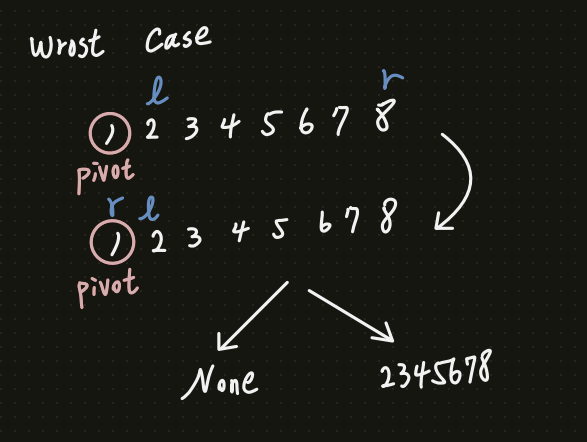 Wrost Case
l r
1 2 3 4 5 6 7 8
pivot
r l
1 2 3 4 5 6 7 8
pivot
None 2345678